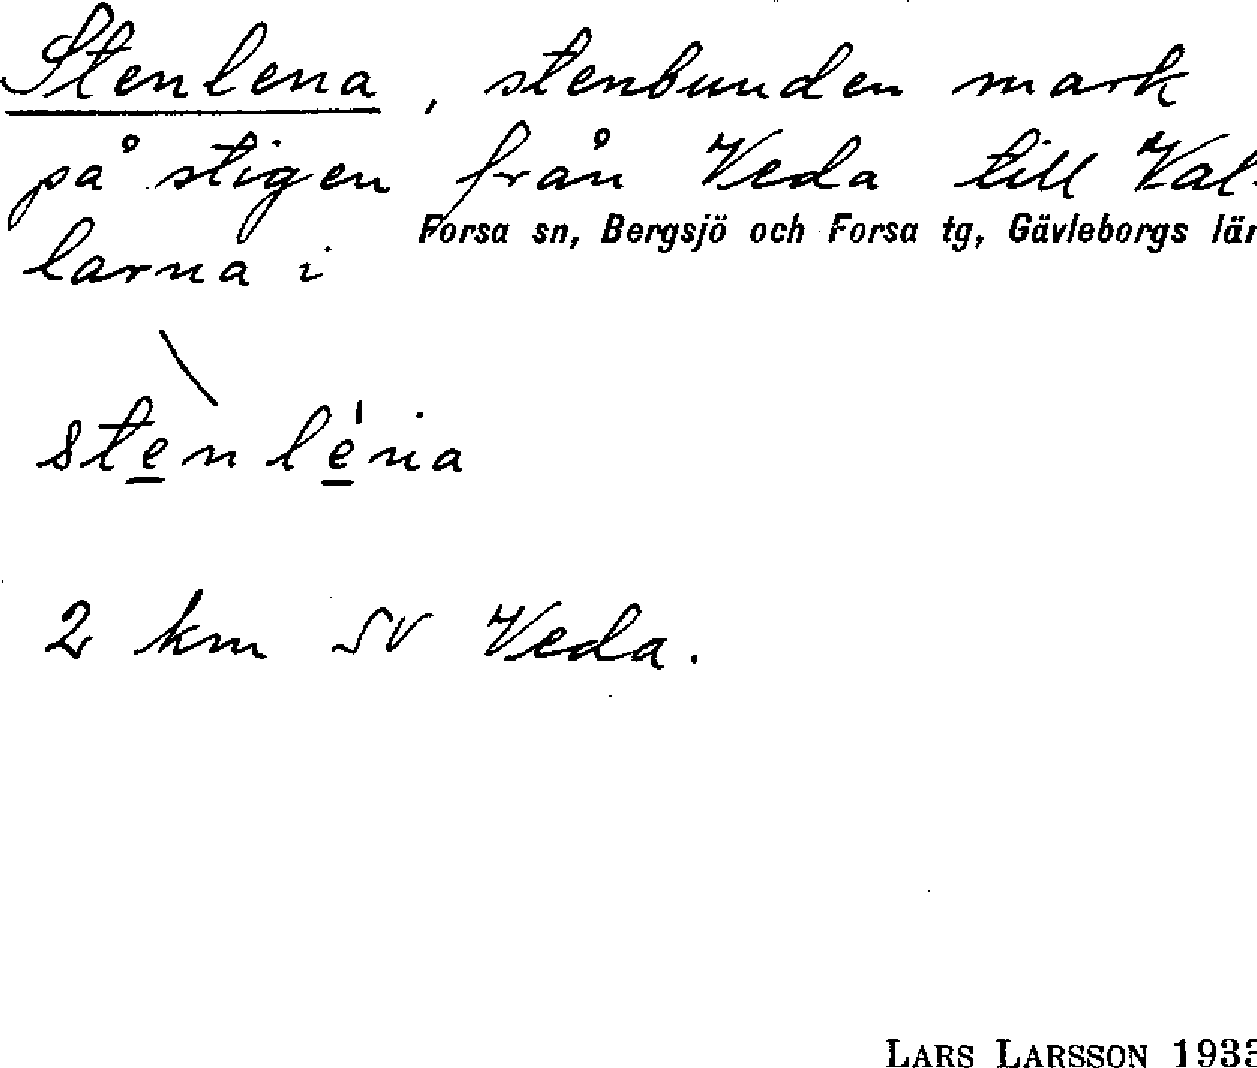 Stenlena, stenbunden mark
på stigen från Veda till Val-
larna i Forsa sn, Bergsjö och Forsa tg, Gävleborgs län
stenléna
2 km SV Veda.
LARS LARSSON